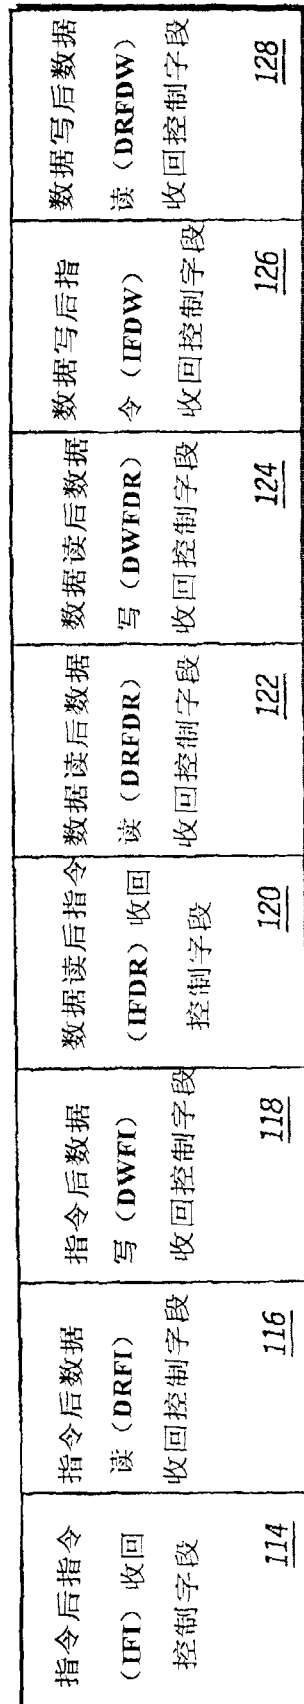 指令后指令
(IFI) 收回
控制字段
114
指令后数据
读 (DRFI)
收回控制字段
116
指令后数据
写 (DWFI)
收回控制字段
118
数据读后指令
(IFDR) 收回
控制字段
120
数据读后数据
读 (DRFDR)
收回控制字段
122
数据读后数据
写 (DWFDR)
收回控制字段
124
数据写后指
令 (IFDW)
收回控制字段
126
数据写后数据
读 (DRFDW)
收回控制字段
128